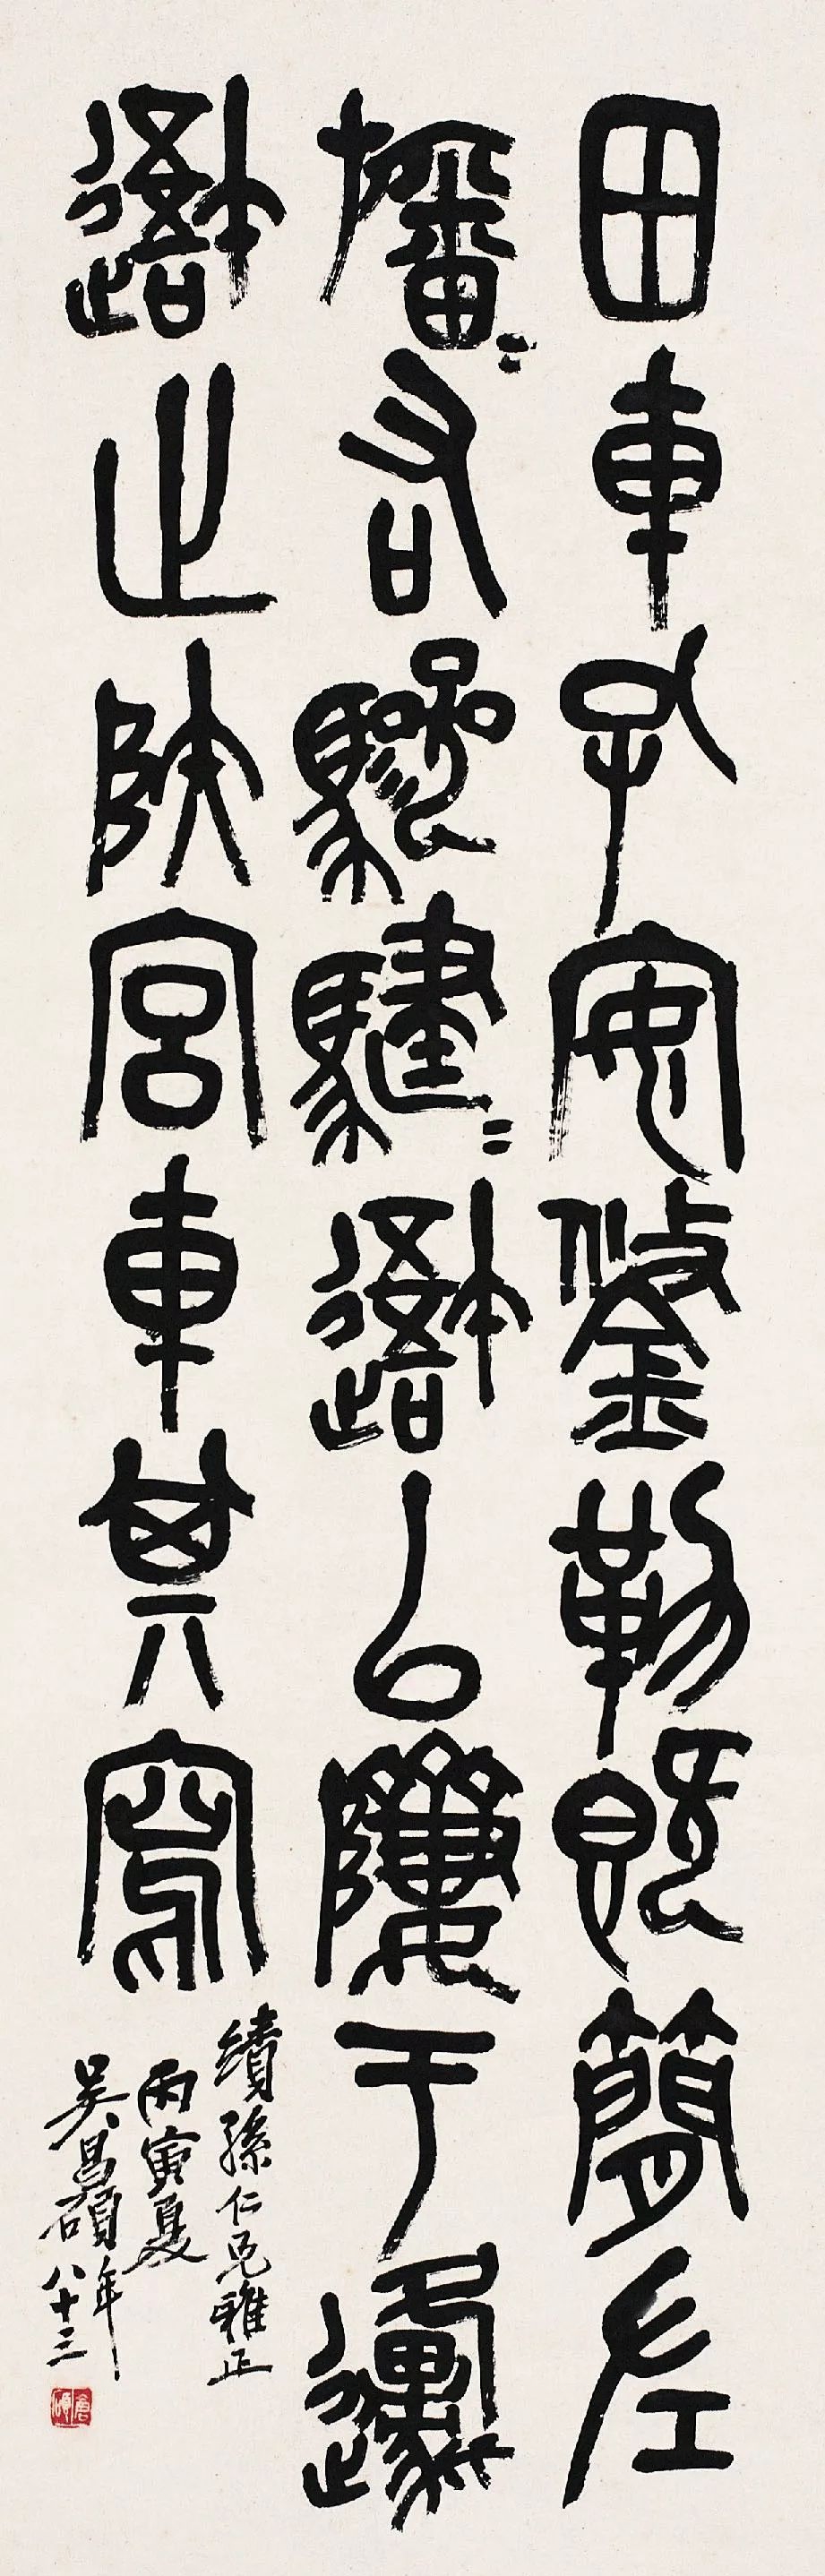 田車孔安鋚勒既簡左
旛=右驂騝=吾以隮于邍
吾止陝宮車其寫
績孫仁兄雅正
丙寅夏
吳昌碩年八十三